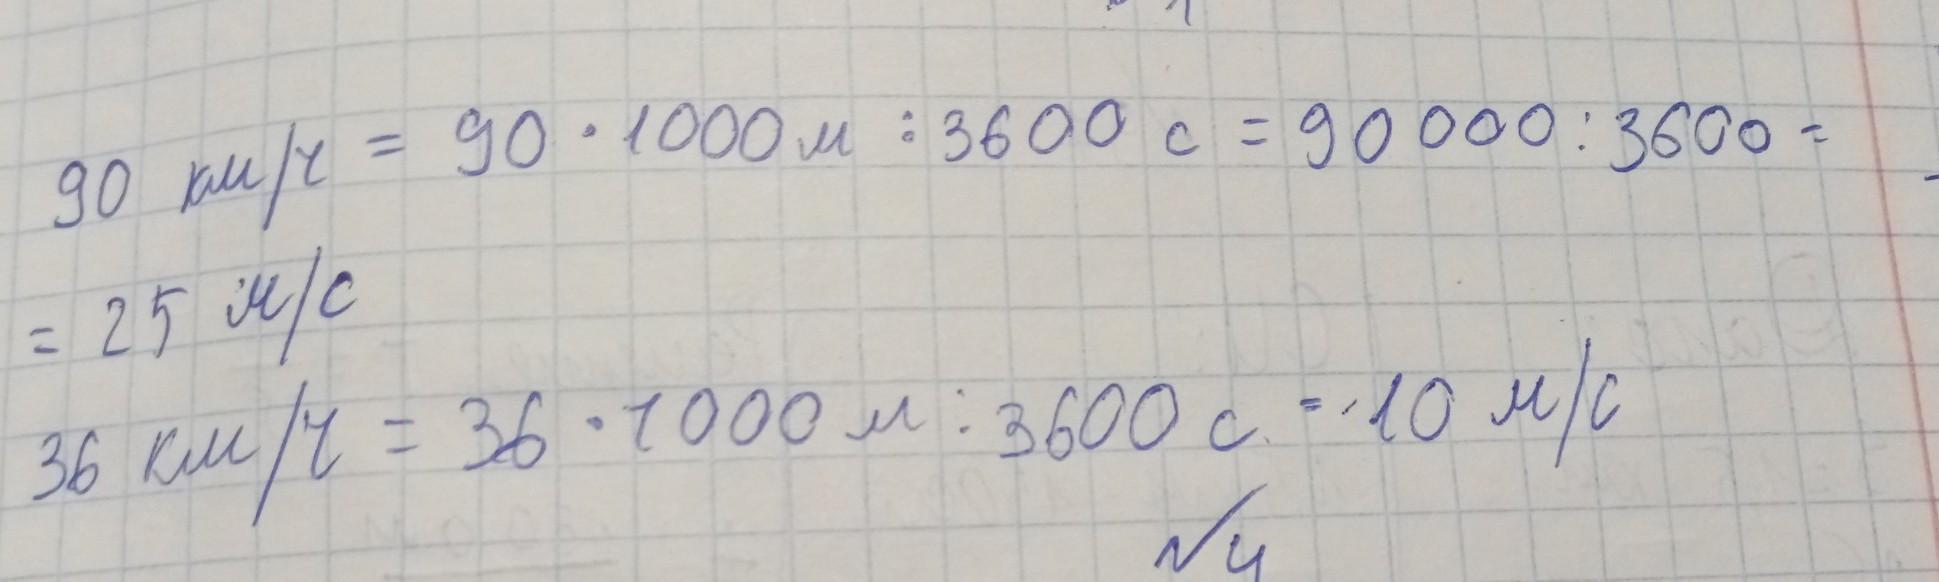 90 км/ч = 90 · 1000 м : 3600 с = 90 000 : 3600 =
= 25 м/с
36 км/ч = 36 · 1000 м : 3600 с. = 10 м/с
№4